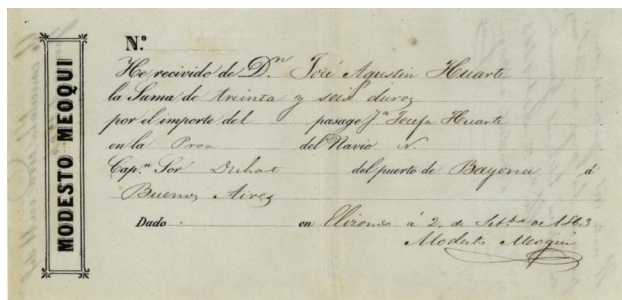 MODESTO MEOQUI
N.º
He recivido de D.ⁿ José Agustin Huarte
la Suma de treinta y seis duros
por el importe del pasage Jª Josefa Huarte
en la Proa del Navio N
Cap.ⁿ Sor Duhat del puerto de Bayona á
Buenos Aires
Dado en á 2. de de 1863
Modesto Meoqui